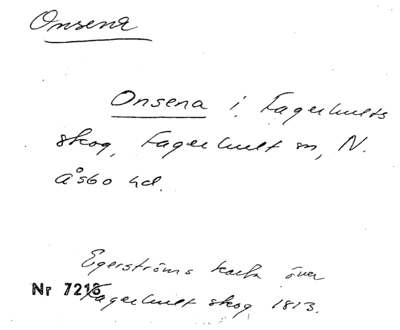 Onsena
Onsena i Fagerhults
skog, Fagerhult sn, N.
Åsbo hd.
Egerströms karta över
Nr 7218
Fagerhult skog 1813.